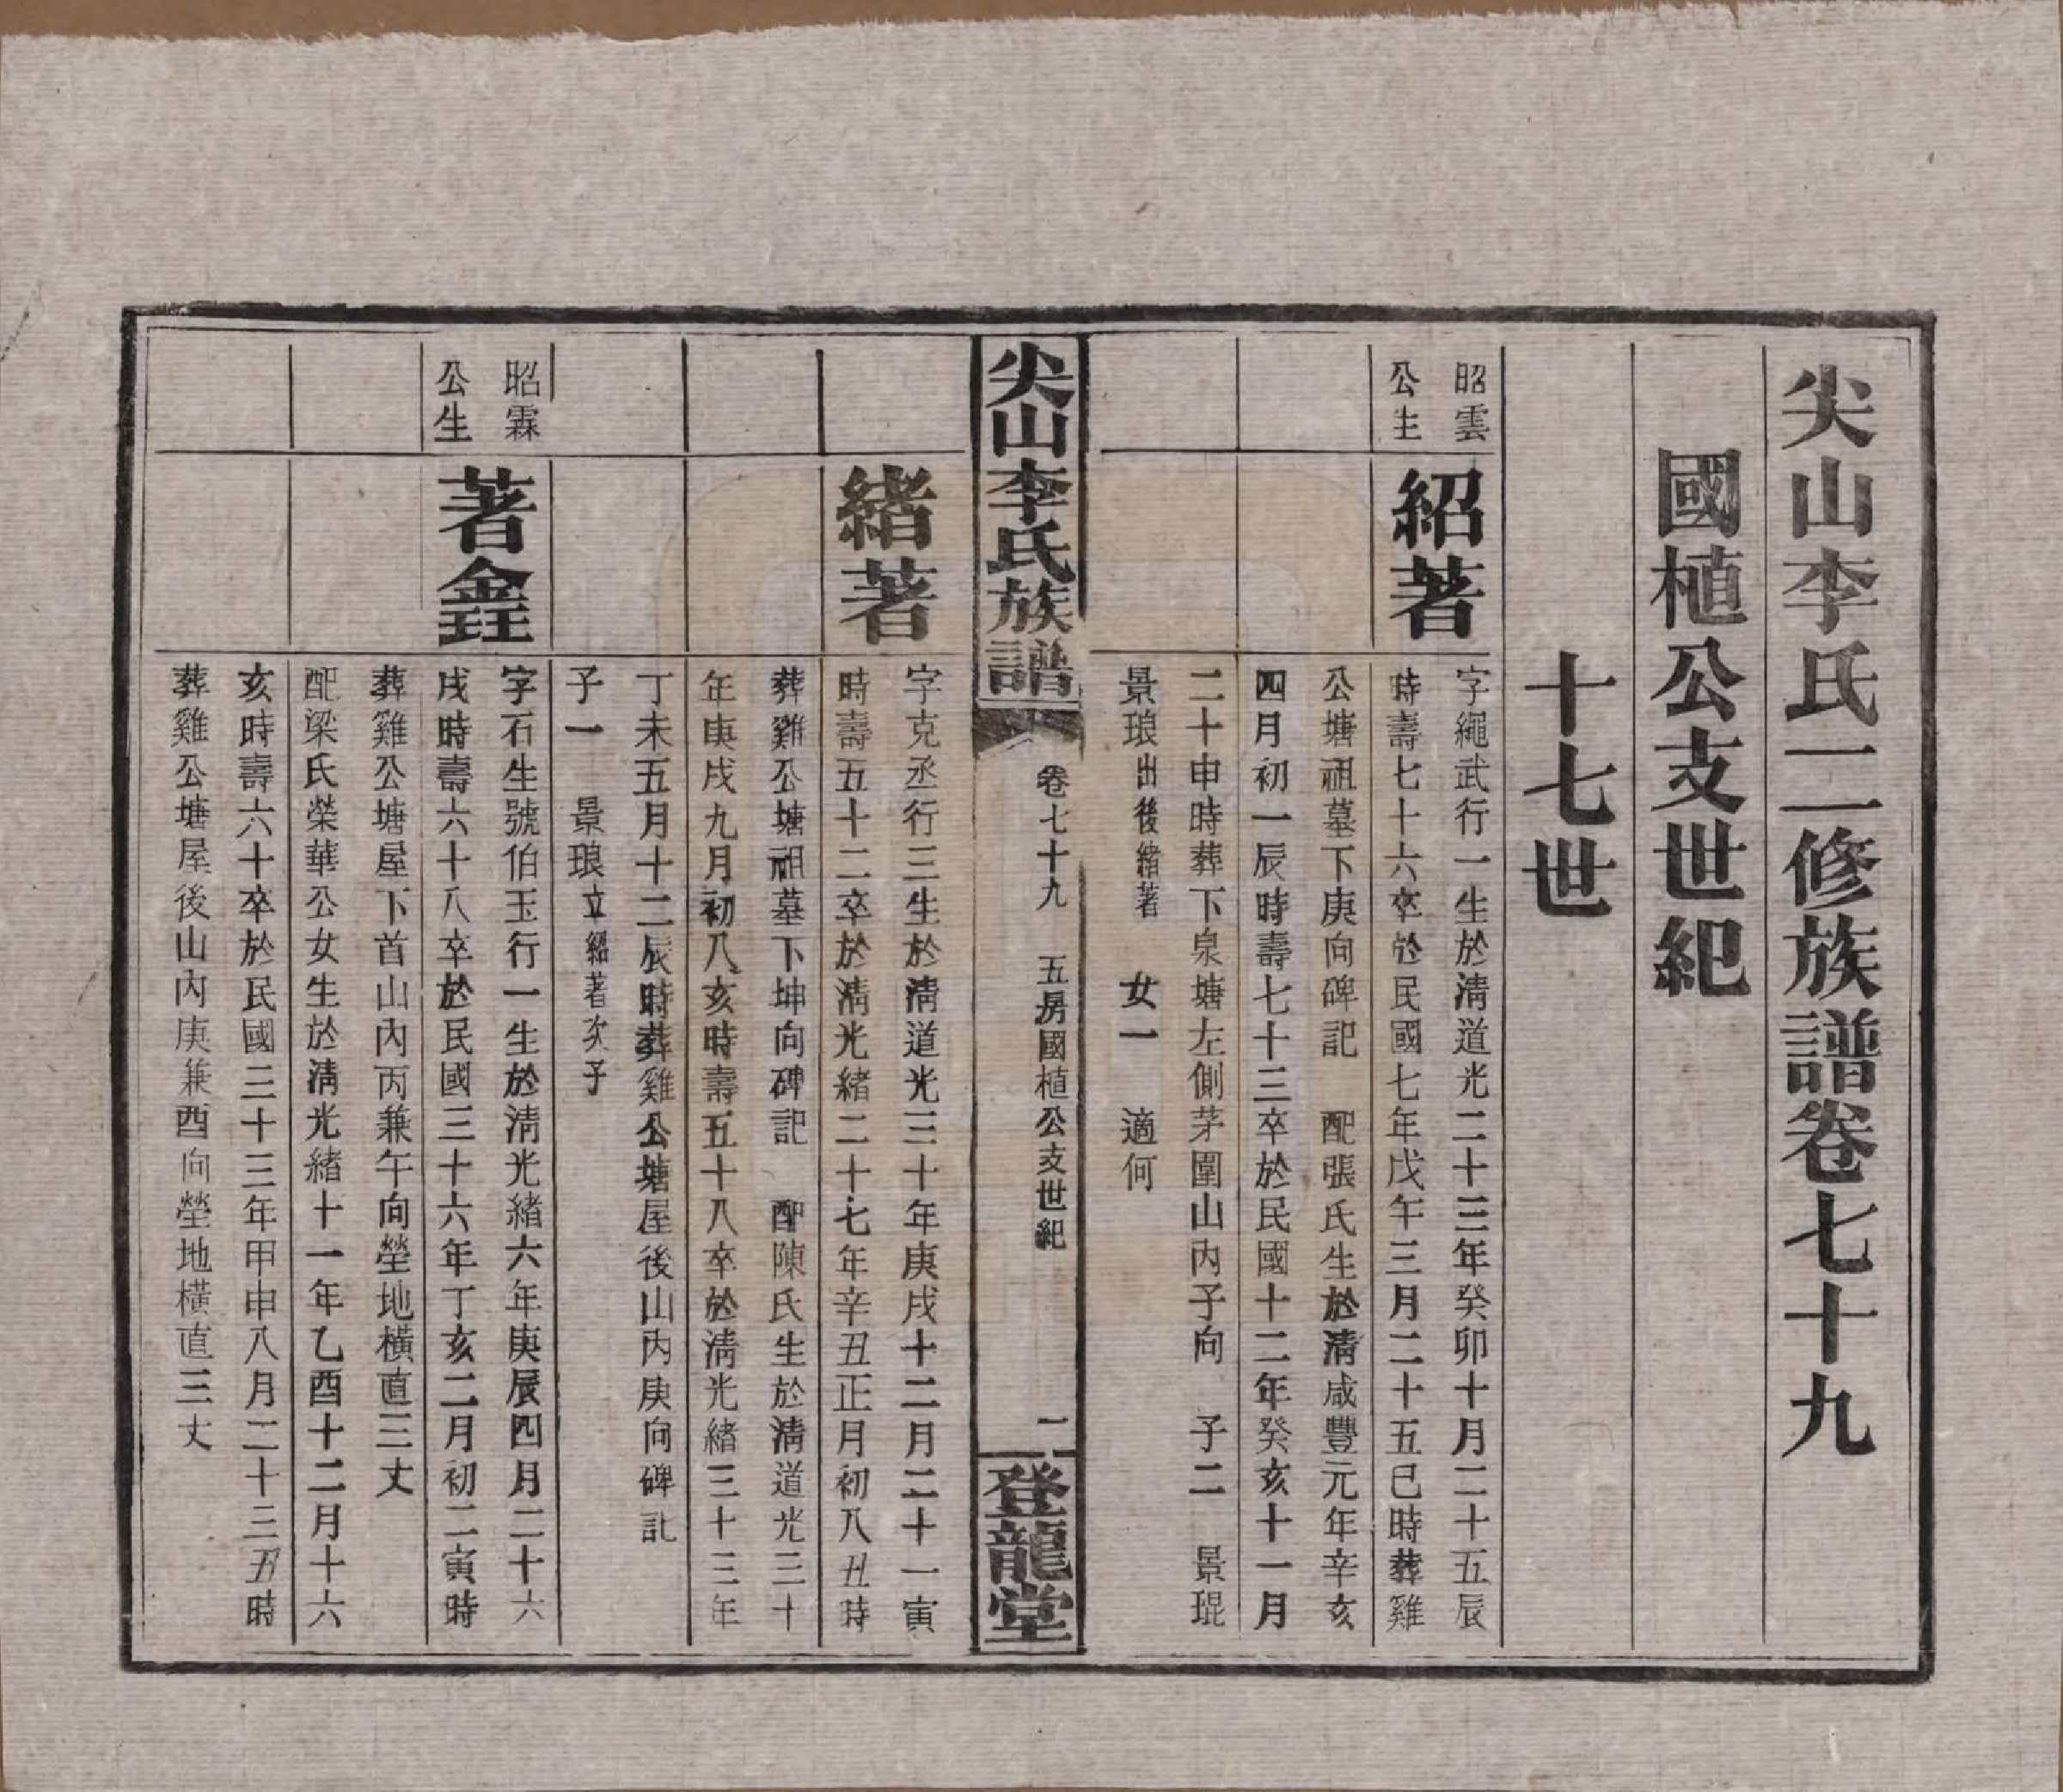 尖山李氏二修族譜卷七十九
國植公支世紀
十七世
昭雲
公生
紹著
字繩武行一生於清道光二十三年癸卯十月二十五辰
時壽七十六卒於民國七年戊午三月二十五巳時葬雞
公塘祖墓下庚向碑記 配張氏生於清咸豐元年辛亥
四月初一辰時壽七十三卒於民國十二年癸亥十一月
二十申時葬下泉塘左側茅園山內子向 子二 景琨
景琅出後緒著 女一 適何
尖山李氏族譜
卷七十九 五房國植公支世紀
一
登龍堂
緒著
字克丞行三生於清道光三十年庚戌十二月二十一寅
時壽五十二卒於清光緒二十七年辛丑正月初八丑時
葬雞公塘祖墓下坤向碑記 配陳氏生於清道光三十
年庚戌九月初八亥時壽五十八卒於清光緒三十三年
丁未五月十二辰時葬雞公塘屋後山內庚向碑記
子一 景琅立紹著次子
昭霖
公生
著鑫玨
字石生號伯玉行一生於清光緒六年庚辰四月二十六
戌時壽六十八卒於民國三十六年丁亥二月初二寅時
葬雞公塘屋下首山內丙兼午向塋地橫直三丈
配梁氏榮華公女生於清光緒十一年乙酉十二月十六
亥時壽六十卒於民國三十三年甲申八月二十三丑時
葬雞公塘屋後山內庚兼酉向塋地橫直三丈